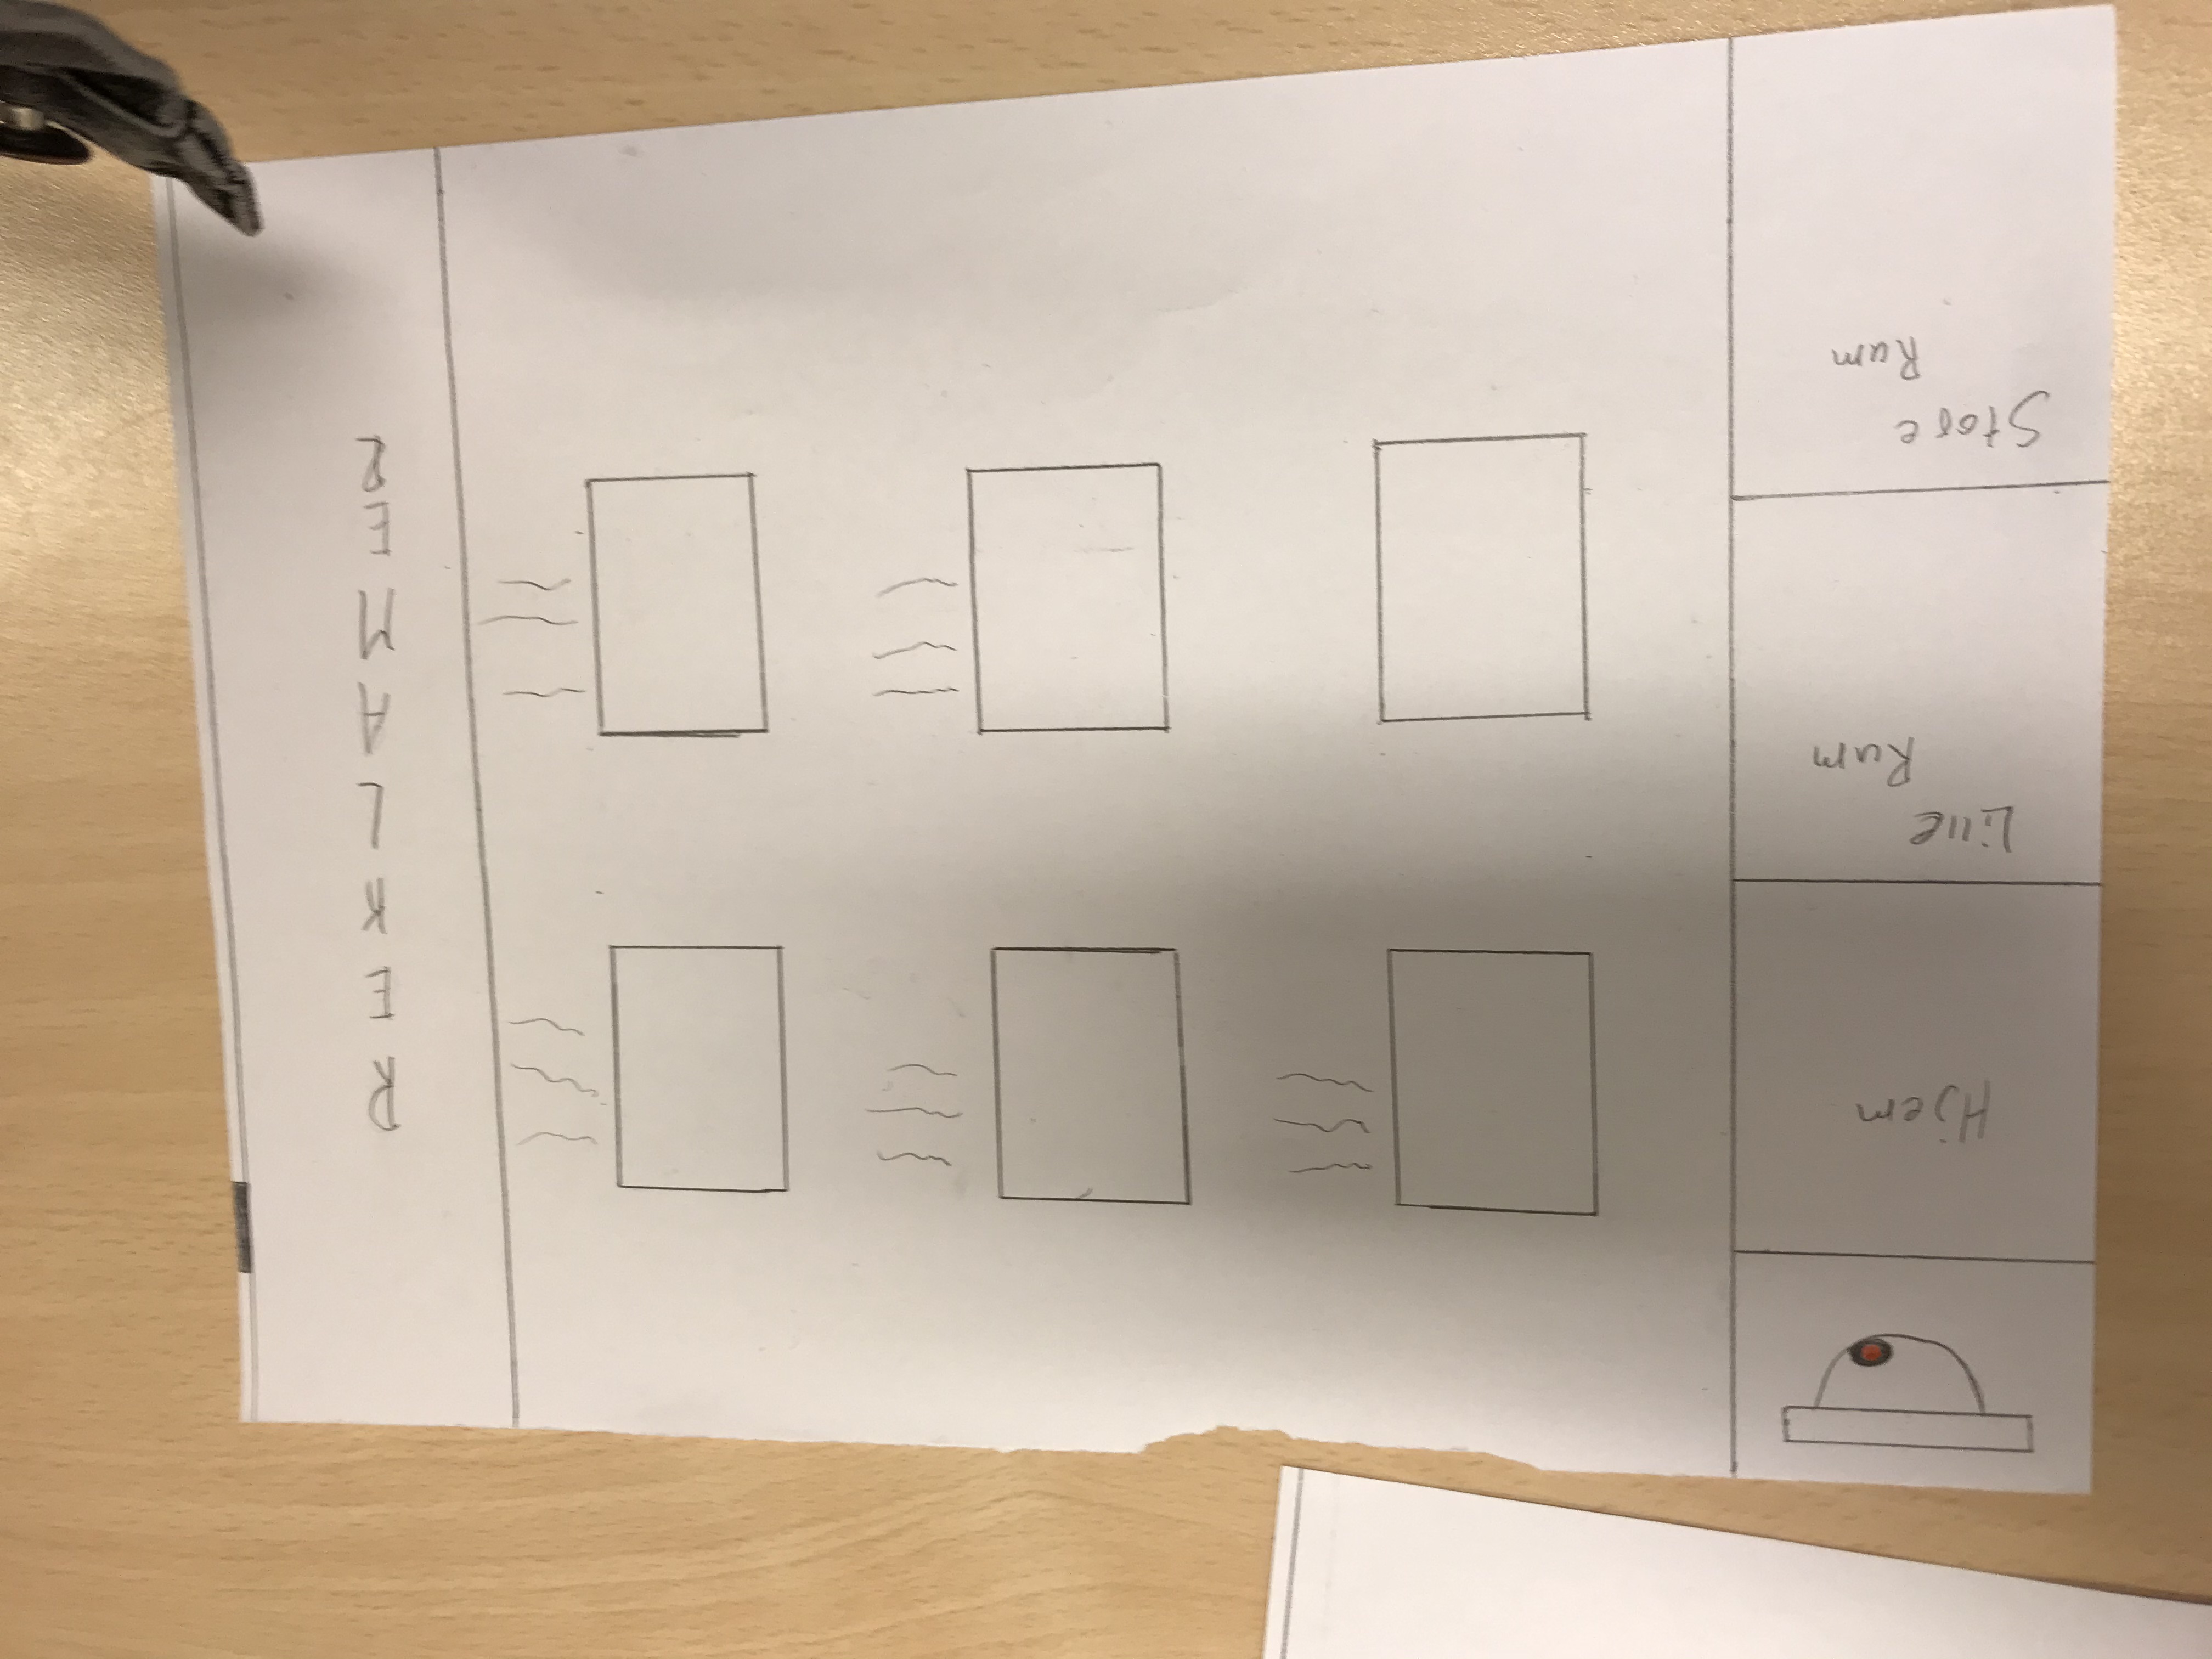 Hjem
Lille
Rum
Store
Rum
REKLAMER